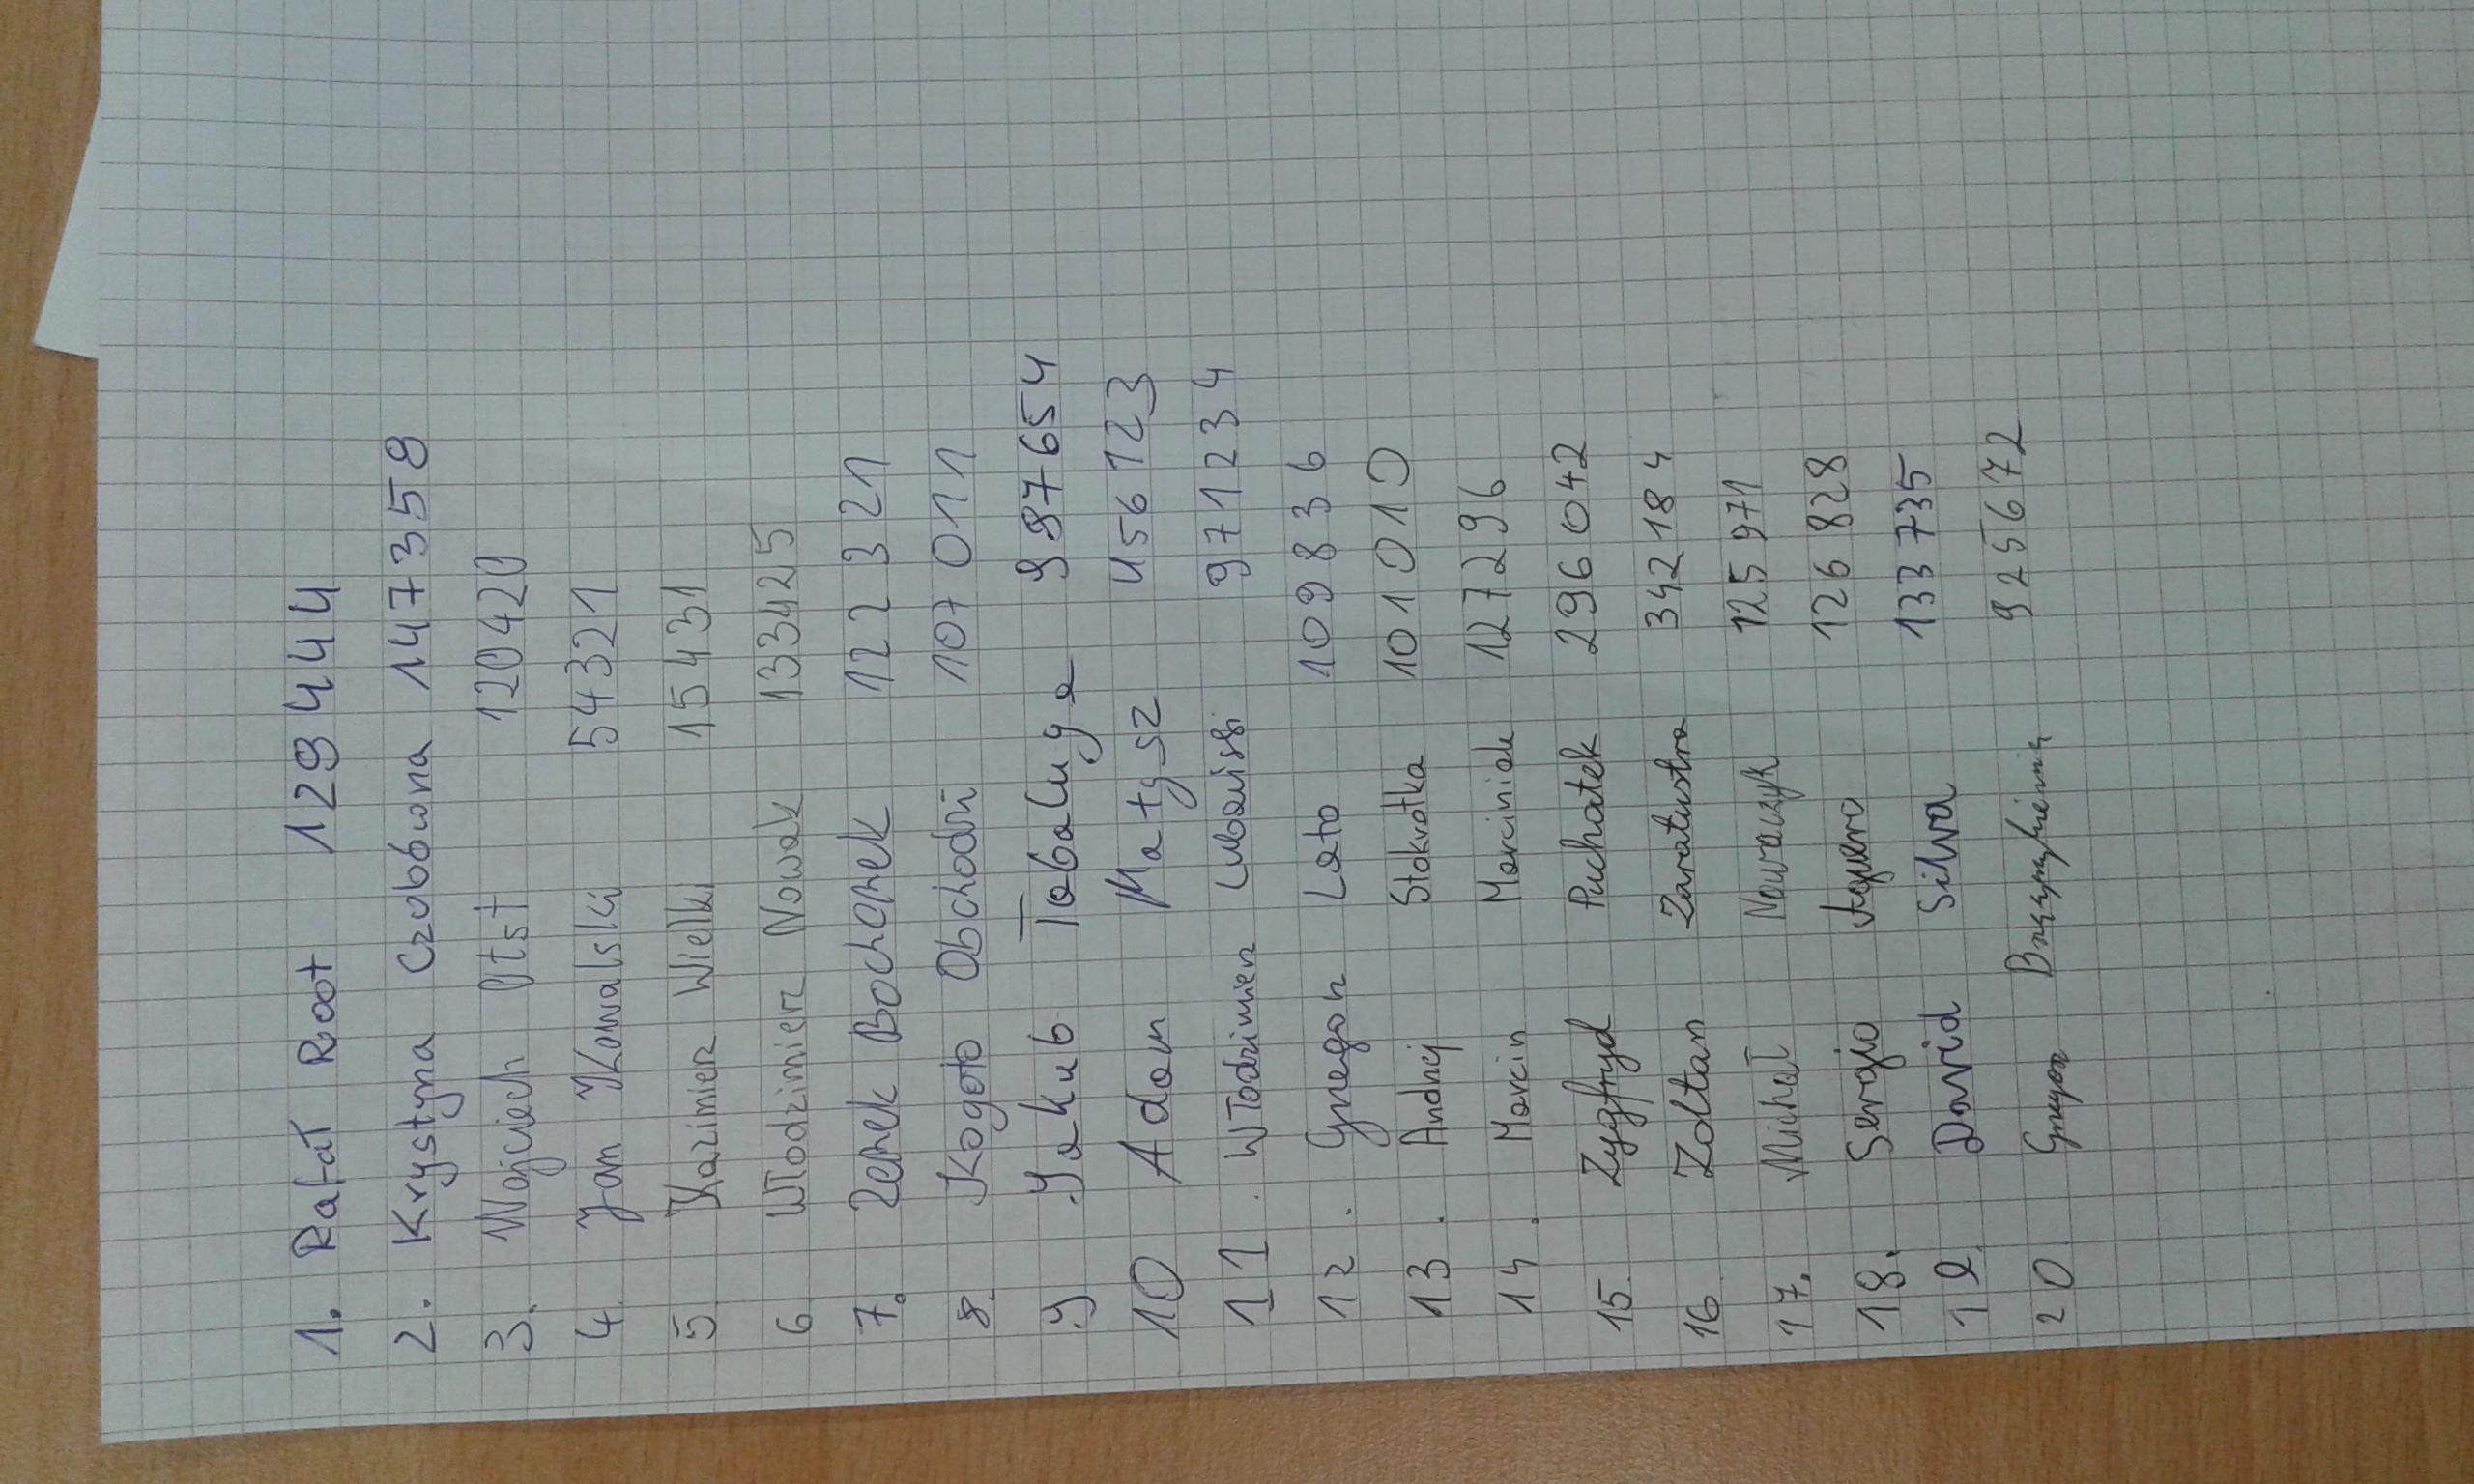 1. Rafał Root 129444
2. Krystyna Czubówna 147358
3. Wojciech Otst 120420
4. Jan Kowalski 54321
5 Kazimierz Wielki 15431
6 Włodzimierz Nowak 133425
7. Zenek Bochenek 122321
8. Kogoto Obchodzi 107011
9 Jakub Tabaluga 987654
10 Adam Małysz 456123
11. Włodzimierz Lubański 971234
12. Grzegorz Lato 109836
13. Andrzej Stokrotka 101010
14. Marcin Marciniak 127296
15. Zygfryd Puchatek 296042
16 Zoltan Zaratustra 342184
17. Michał Nowaczyk 125971
18. Sergio Aguero 126828
19. David Silva 133735
20 Grzegorz 925672